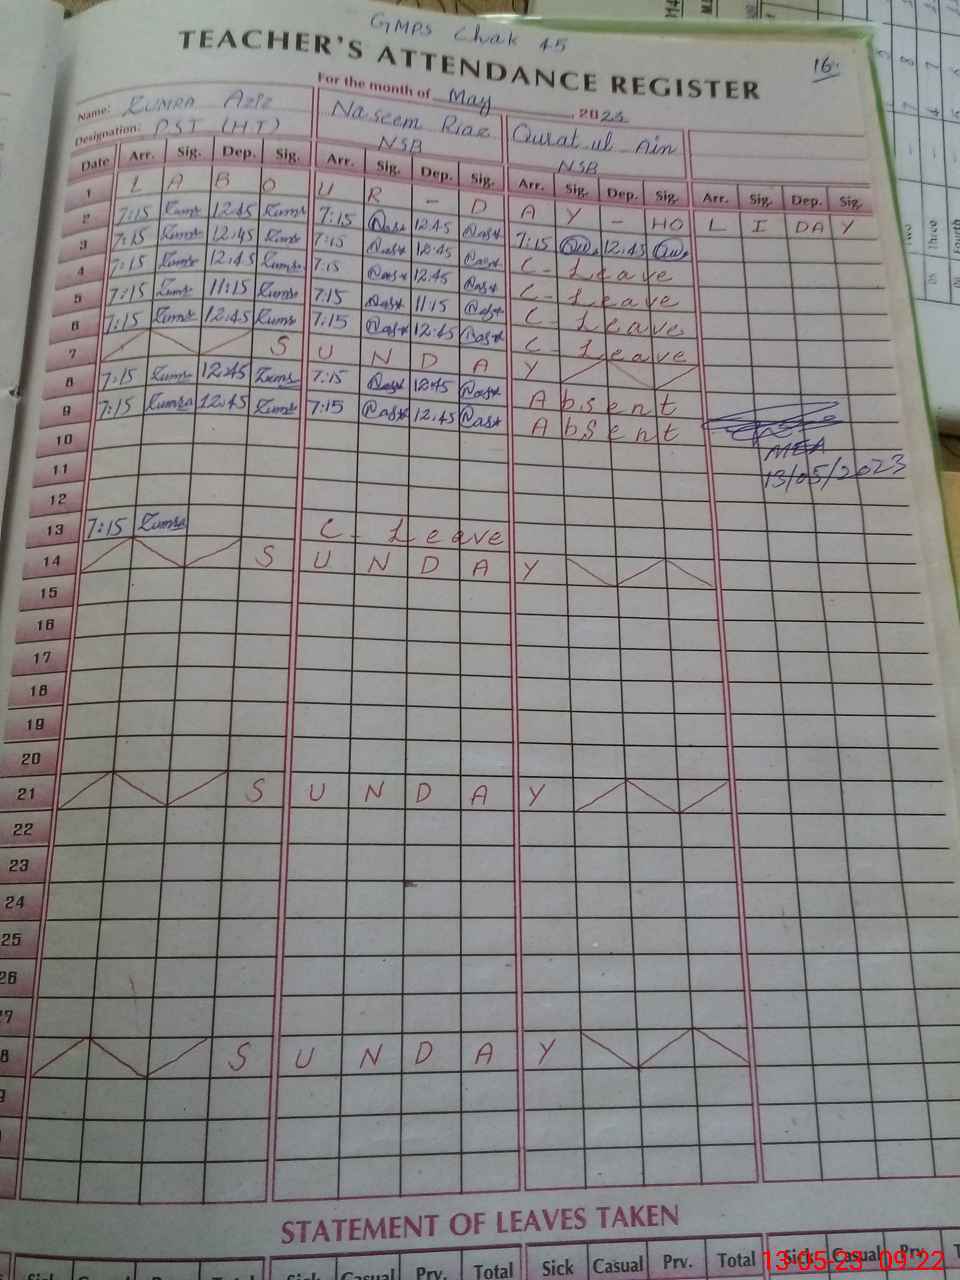 GMPS Chak 45
TEACHER'S ATTENDANCE REGISTER
16
For the month of May, 2023
Name: Kumra Aziz Naseem Riaz Qurat ul Ain
Designation: PST (HT) NSB NSB
Date Arr. Sig. Dep. Sig. Arr. Sig. Dep. Sig. Arr. Sig. Dep. Sig. Arr. Sig. Dep. Sig.
1 L A B O U R - D A Y - HO L I DA Y
2 7:15 12:45 7:15 12:45 7:15 12:45
3 7:15 12:45 7:15 12:45 C - Leave
4 7:15 12:45 7:15 12:45 C - Leave
5 7:15 11:15 7:15 11:15 C - Leave
6 7:15 12:45 7:15 12:45 C - Leave
7 S U N D A Y
8 7:15 12:45 7:15 12:45 Absent
9 7:15 12:45 7:15 12:45 Absent
10
MEA
11
13/05/2023
12
13 7:15 C - Leave
14 S U N D A Y
15
16
17
18
19
20
21 S U N D A Y
22
23
24
25
26
27
8 S U N D A Y
9
STATEMENT OF LEAVES TAKEN
Sick Casual Prv. Total Sick Casual Prv. Total Sick Casual Prv. Total Sick Casual Prv.
13-05-23 09:22